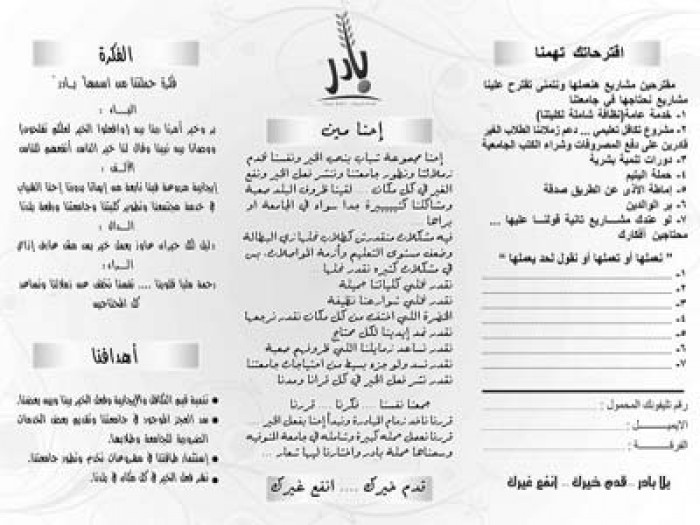 اقتراحاتك تهمنا
مقترحين مشاريع هنعملها ونتمنى تقترح علينا
مشاريع نحتاجها فى جامعتنا
١- خدمة عامة(نظافة شاملة لكليتنا)
٢- مشروع تكافل تعليمي ... دعم زملائنا الطلاب الغير
قادرين على دفع المصروفات وشراء الكتب الجامعية
٣- دورات تنمية بشرية
٤- حملة اليتيم
٥- إماطة الأذى عن الطريق صدقة
٦- بر الوالدين
٧- لو عندك مشاريع تانية قولنا عليها ...
محتاجين أفكارك
" نعملها أو تعملها أو نقول لحد يعملها "
١-
٢-
٣-
٤-
٥-
٦-
٧-
رقم تليفونك المحمول :
الايميل :
الفرقة :
يلا بادر .. قدم خيرك .. انفع غيرك
بادر
إحنا مين
إحنا مجموعة شباب بنحب الخير ونفسنا نخدم
زملائنا ونطور جامعتنا وننشر فعل الخير وننفع
الغير في كل مكان ... لقينا ظروف البلد صعبة
ومشاكلنا كتيييييرة جدا سواء في الجامعة او
براها ..
فيه مشكلات منقدرش كطلاب نحلها زي البطالة
وضعف مستوى التعليم وأزمة المواصلات. بس
في مشكلات كتيره نقدر نحلها ..
نقدر نخلي كلياتنا جميلة
نقدر نخلي شوارعنا نظيفة
الخضرة اللي اختفت من كل مكان نقدر نرجعها
نقدر نمد إيدينا لكل محتاج
نقدر نساعد زمايلنا اللي ظروفهم صعبة
نقدر نسد ولو جزء بسيط من احتياجات جامعتنا
نقدر ننشر فعل الخير في كل قرانا ومدنا
جمعنا نفسنا .... فكرنا ... قررنا
قررنا ناخد زمام المبادرة ونبدأ إحنا بفعل الخير ...
قررنا نعمل حملة كبيرة وشاملة في جامعة المنوفيه
وسمناها حملة بادر واختارنا ليها شعار ...
قدم خيرك .... انفع غيرك
الفكرة
فكرة حملتنا من اسمها "بادر"
البـاء :
بر وخير أمرنا بنا بيه (وافعلوا الخير لعلكم تفلحون)
ووصانا بيه نبينا وقال لنا خير الناس أنفعهم للناس
الألـف :
إيجابية مزروعة فينا نابعة من إيماننا بدورنا إحنا الشباب
في خدمة مجتمعنا وتطوير كليتنا وجامعتنا ورفعة بلدنا
الـدال :
دليل لك خيرك عاوز يعمل خير بس مش عارف إزاي
الـراء :
رحمة مليا قلوبنا .... نفسنا نخفف عن زملائنا ونساعد
كل المحتاجين
أهدافنا
• تنمية قيم التكافل والإيجابية وفعل الخير بينا وبين بعضنا.
• سد العجز الموجود في جامعتنا وتقديم بعض الخدمات
الضرورية للجامعة وطلابها.
• إستثمار طاقتنا في مشروعات تخدم وتطور جامعتنا.
• نشر فعل الخير في كل مكان في بلدنا.